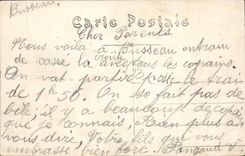 Busseau
Carte Postale
Cher Parents
Nous voilà a Busseau en train
de casse la croute avec tous les copains
On vat partir par le train
de 1h50. On se fait pas de
bile, il y a beaucoup de copains
que je connais. Rien plus a
vous dire, Votre fils qui vous
embrasse bien fort.